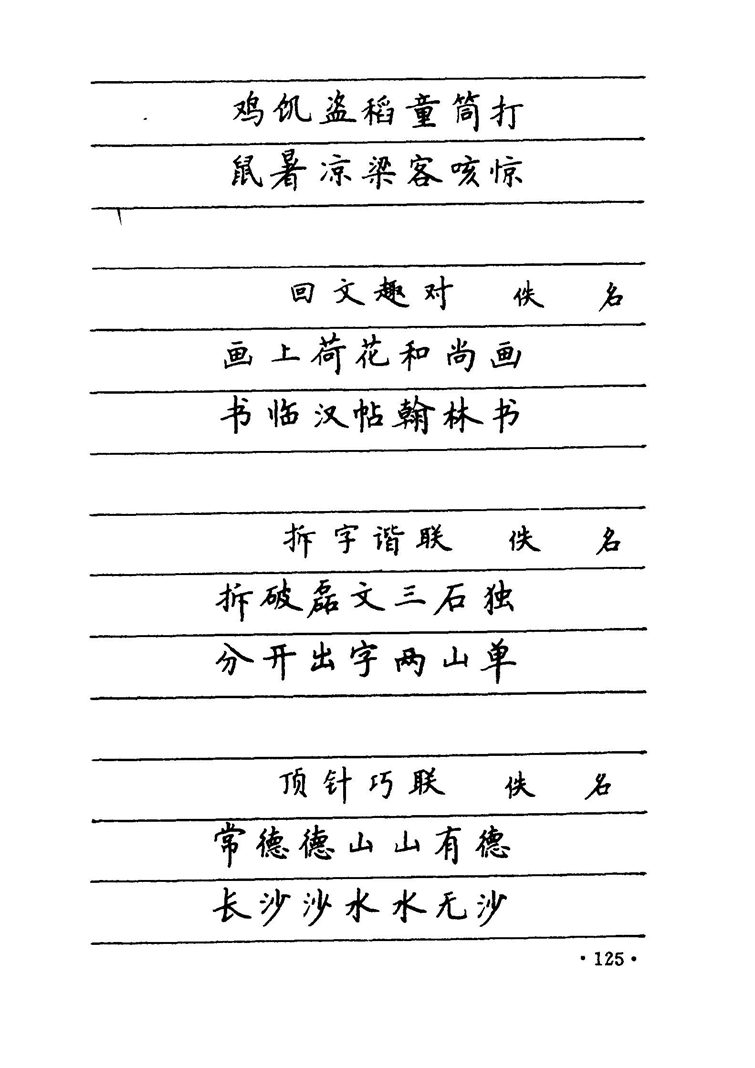 鸡饥盗稻童筒打
鼠暑凉梁客咳惊
回文趣对 佚名
画上荷花和尚画
书临汉帖翰林书
拆字谐联 佚名
拆破磊文三石独
分开出字两山单
顶针巧联 佚名
常德德山山有德
长沙沙水水无沙
·125·